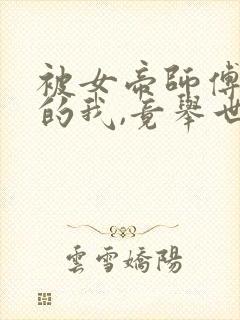 被女帝師傅
的我,竟舉世
雲雪嬌陽